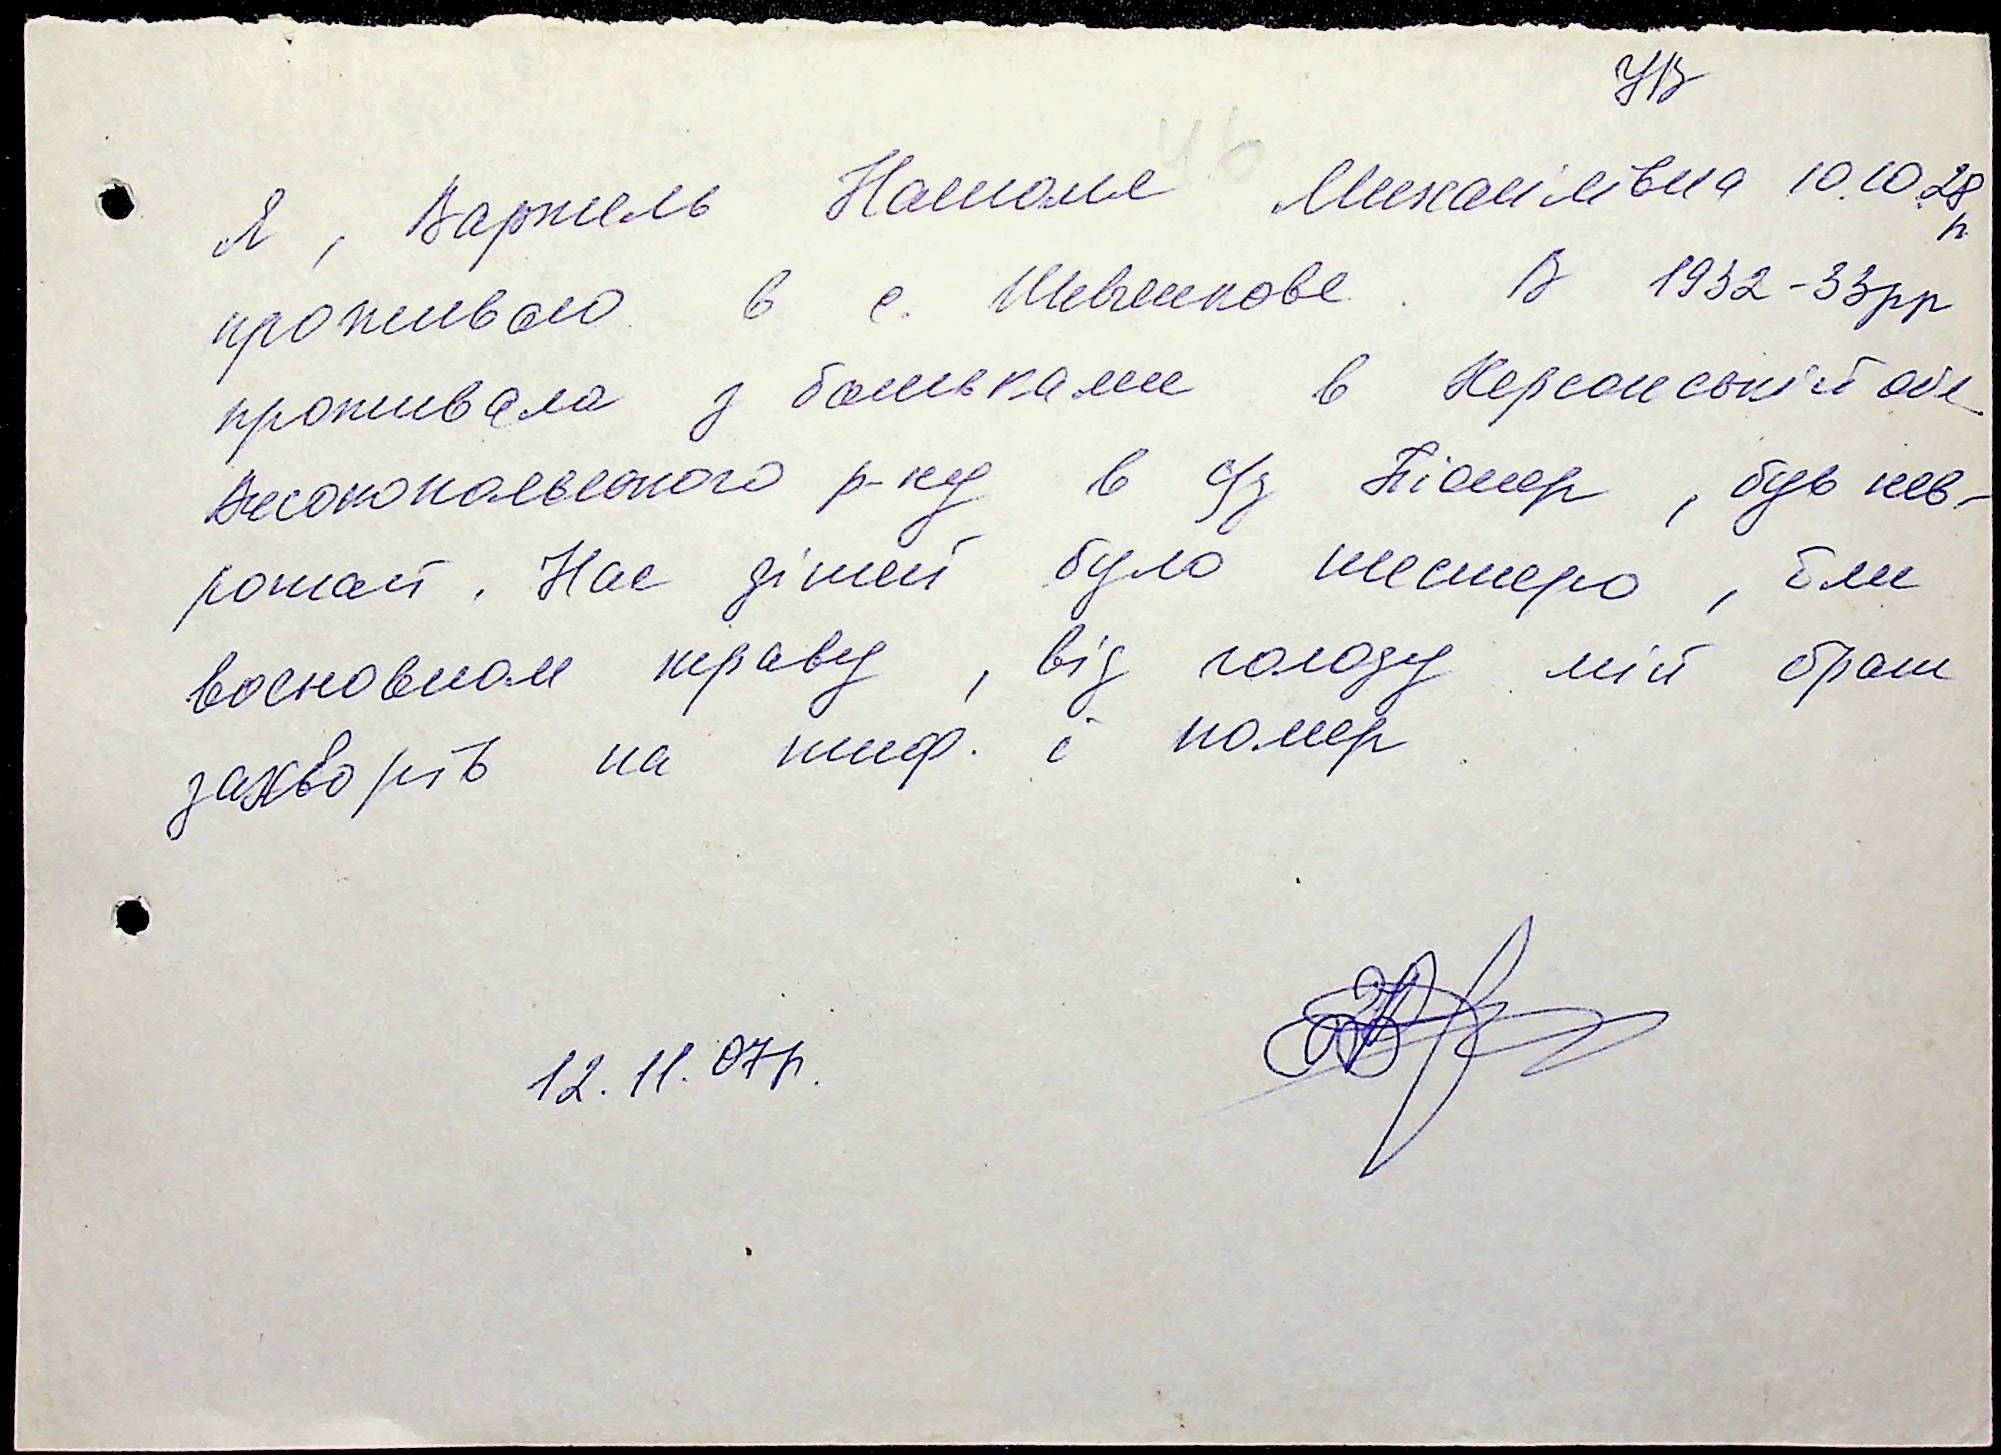 УВ
46
Я, Варжель Наталя Михайлівна 10.10.28
р.
проживаю в с. Шевченкове. В 1932-33рр
проживала з батьками в Херсонській обл
Високопольського р-ну в с/з Піонер, був нев-
рожай. Нас дітей було шестеро, їли
восновном траву, від голоду мій брат
захворів на тиф. і помер.
12.11.07р.